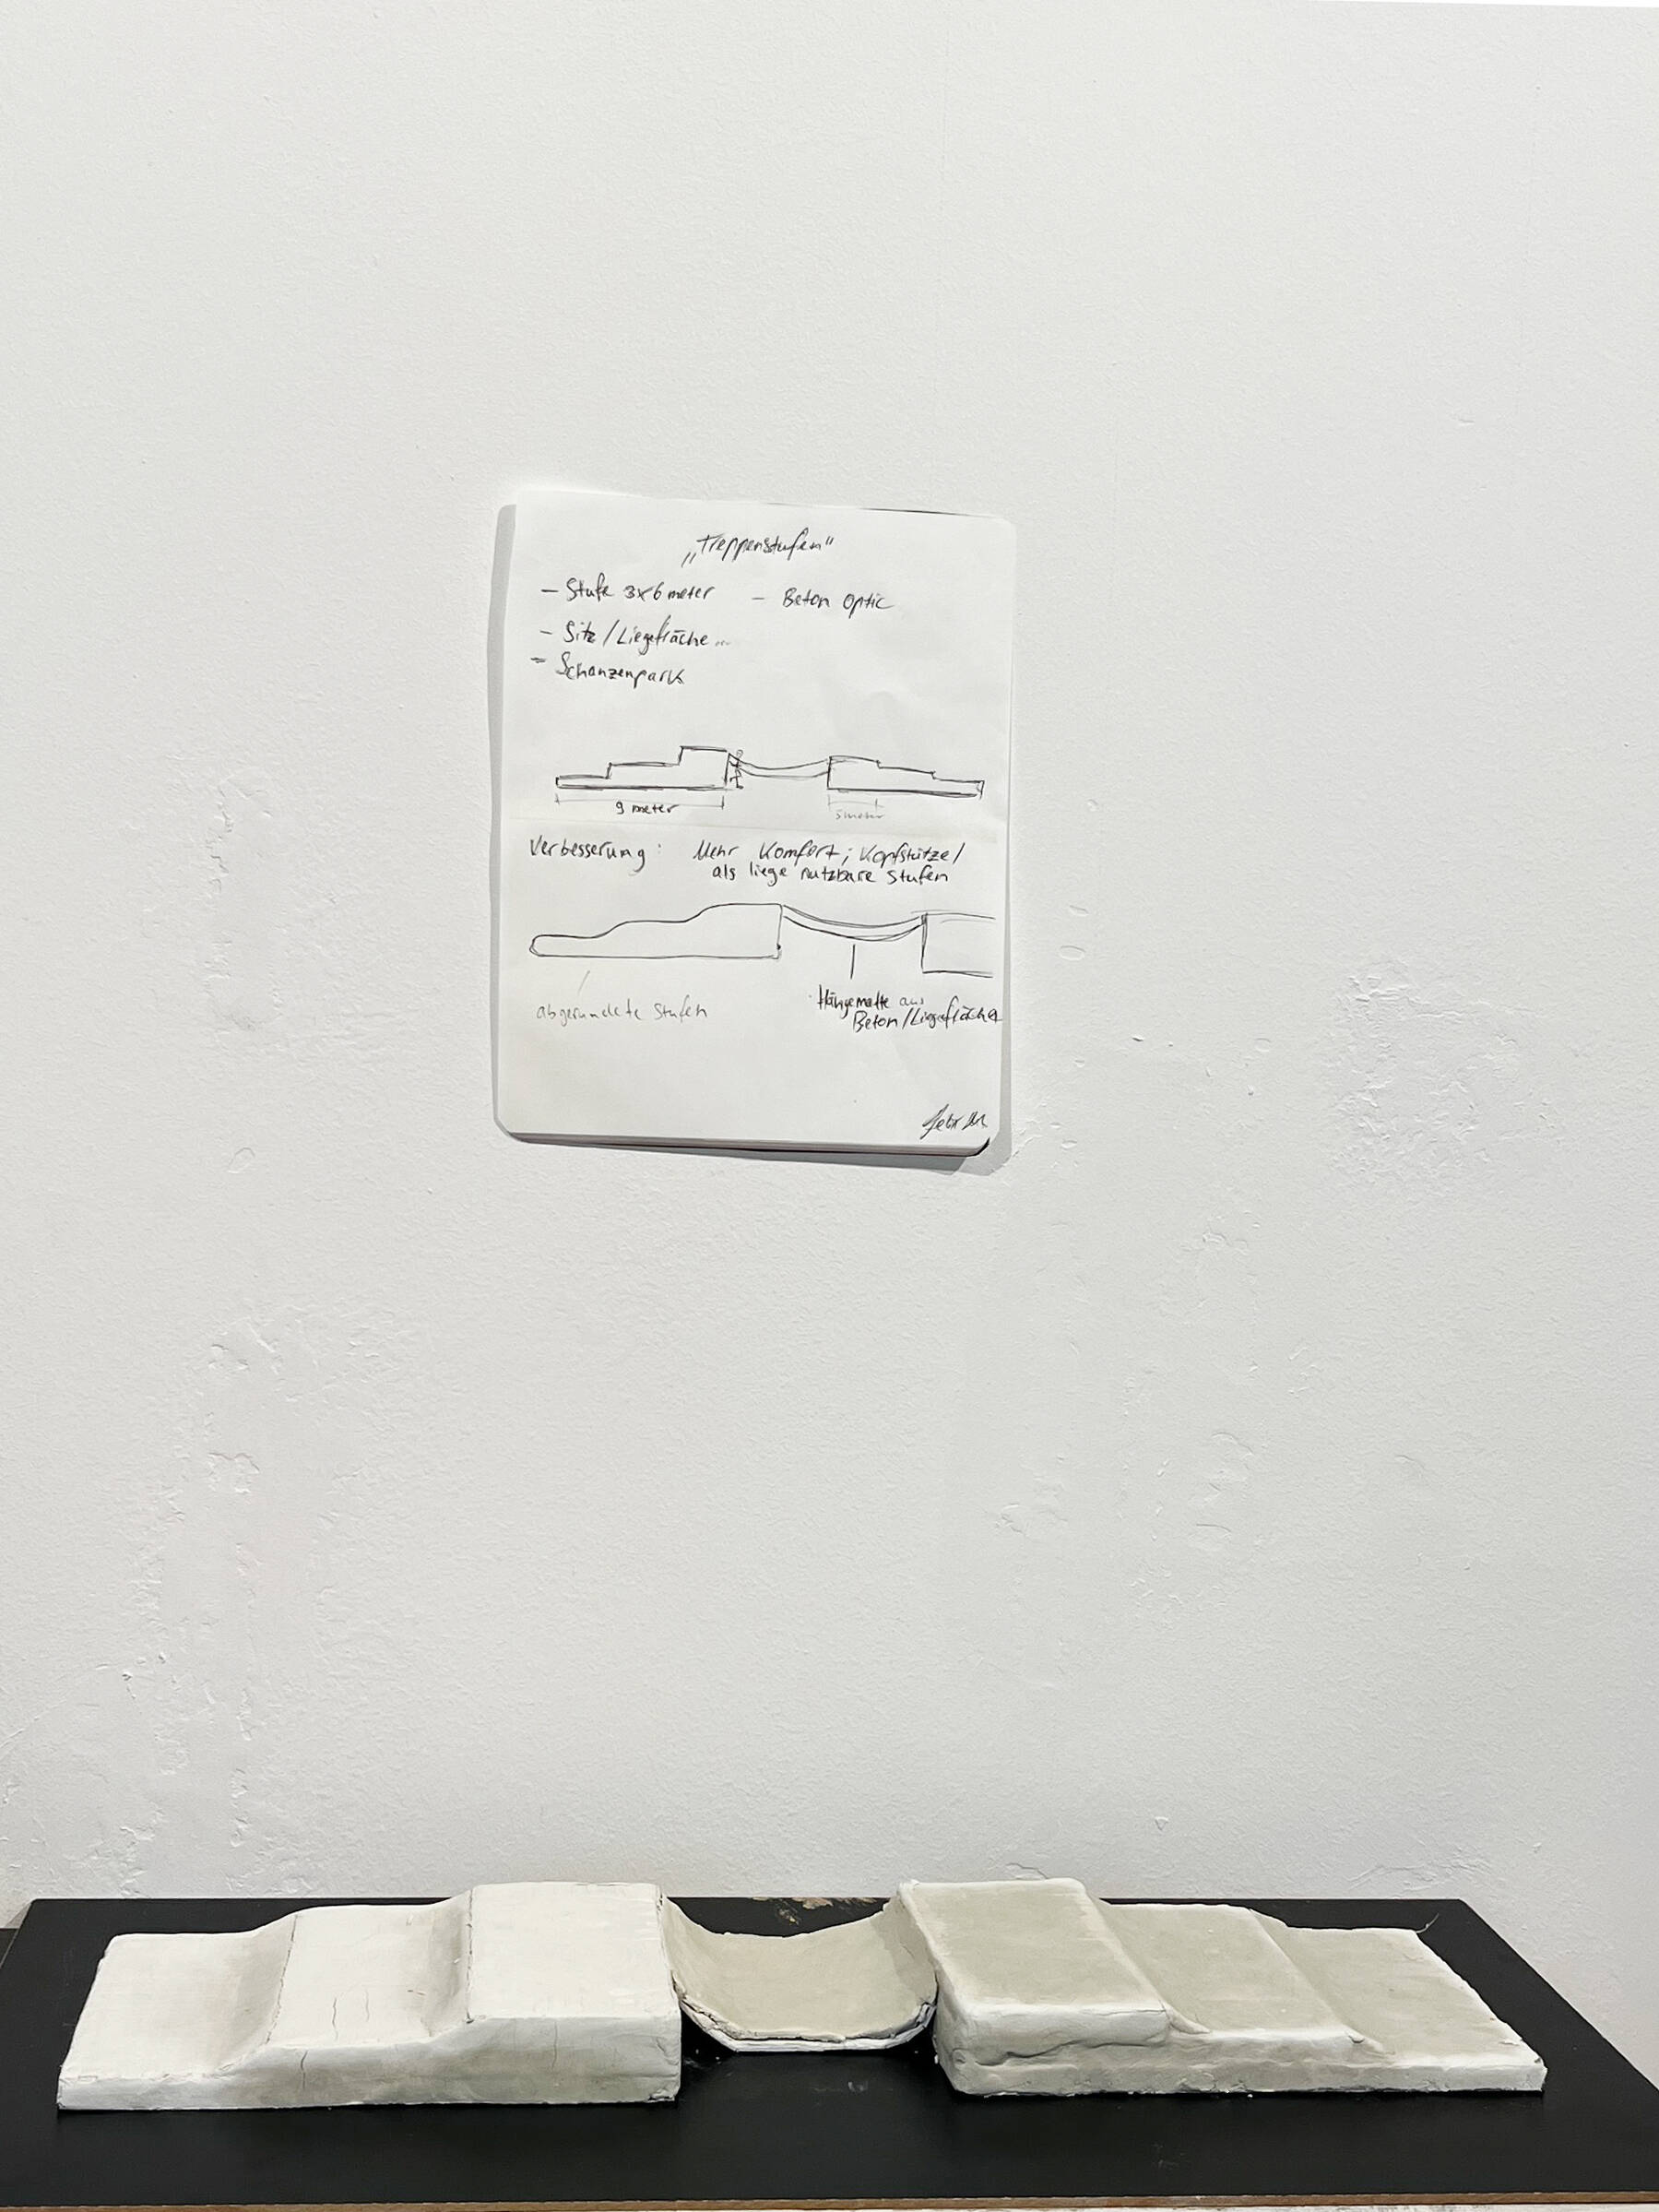 „Treppenstufen"
– Stufe 3x6 meter – Beton Optic
– Sitz/Liegefläche...
– Schanzenpark
9 meter
5 meter
Verbesserung: Mehr Komfort; Kopfstütze/
als liege nutzbare Stufen
abgerundete Stufen
Hängematte aus
Beton/Liegefläche
Felix